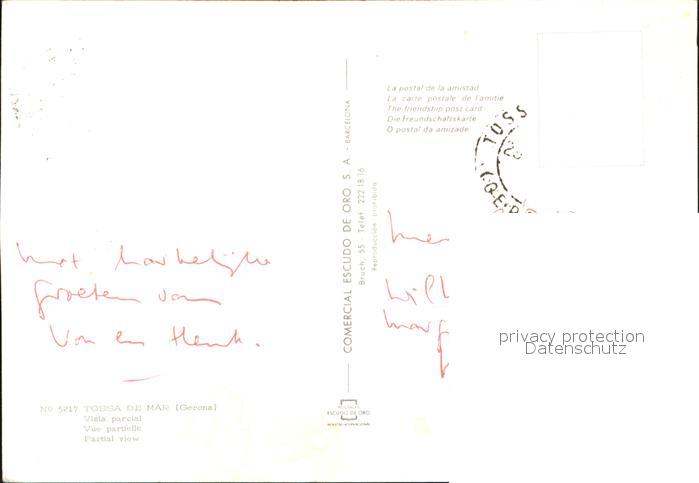 La postal de la amistad
La carte postale de l'amitie
The friendship post card
Die Freundschaftskarte
O postal da amizade
TOSS
COMERCIAL ESCUDO DE ORO S A - BARCELONA
Bruch, 55 Telef. 222 18 16
Reproduccion prohibida
met hartelijke
groeten van
Von en Henk.
privacy protection
Datenschutz
No 5217 TOSSA DE MAR (Gerona)
Vista parcial
Vue partielle
Partial view
ESCUDO DE ORO